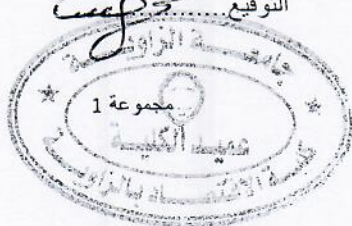 التوقيع........
جامعة الزاوية
مجموعة 1
عميد الكلية
كلية الاقتصاد بالزاوية